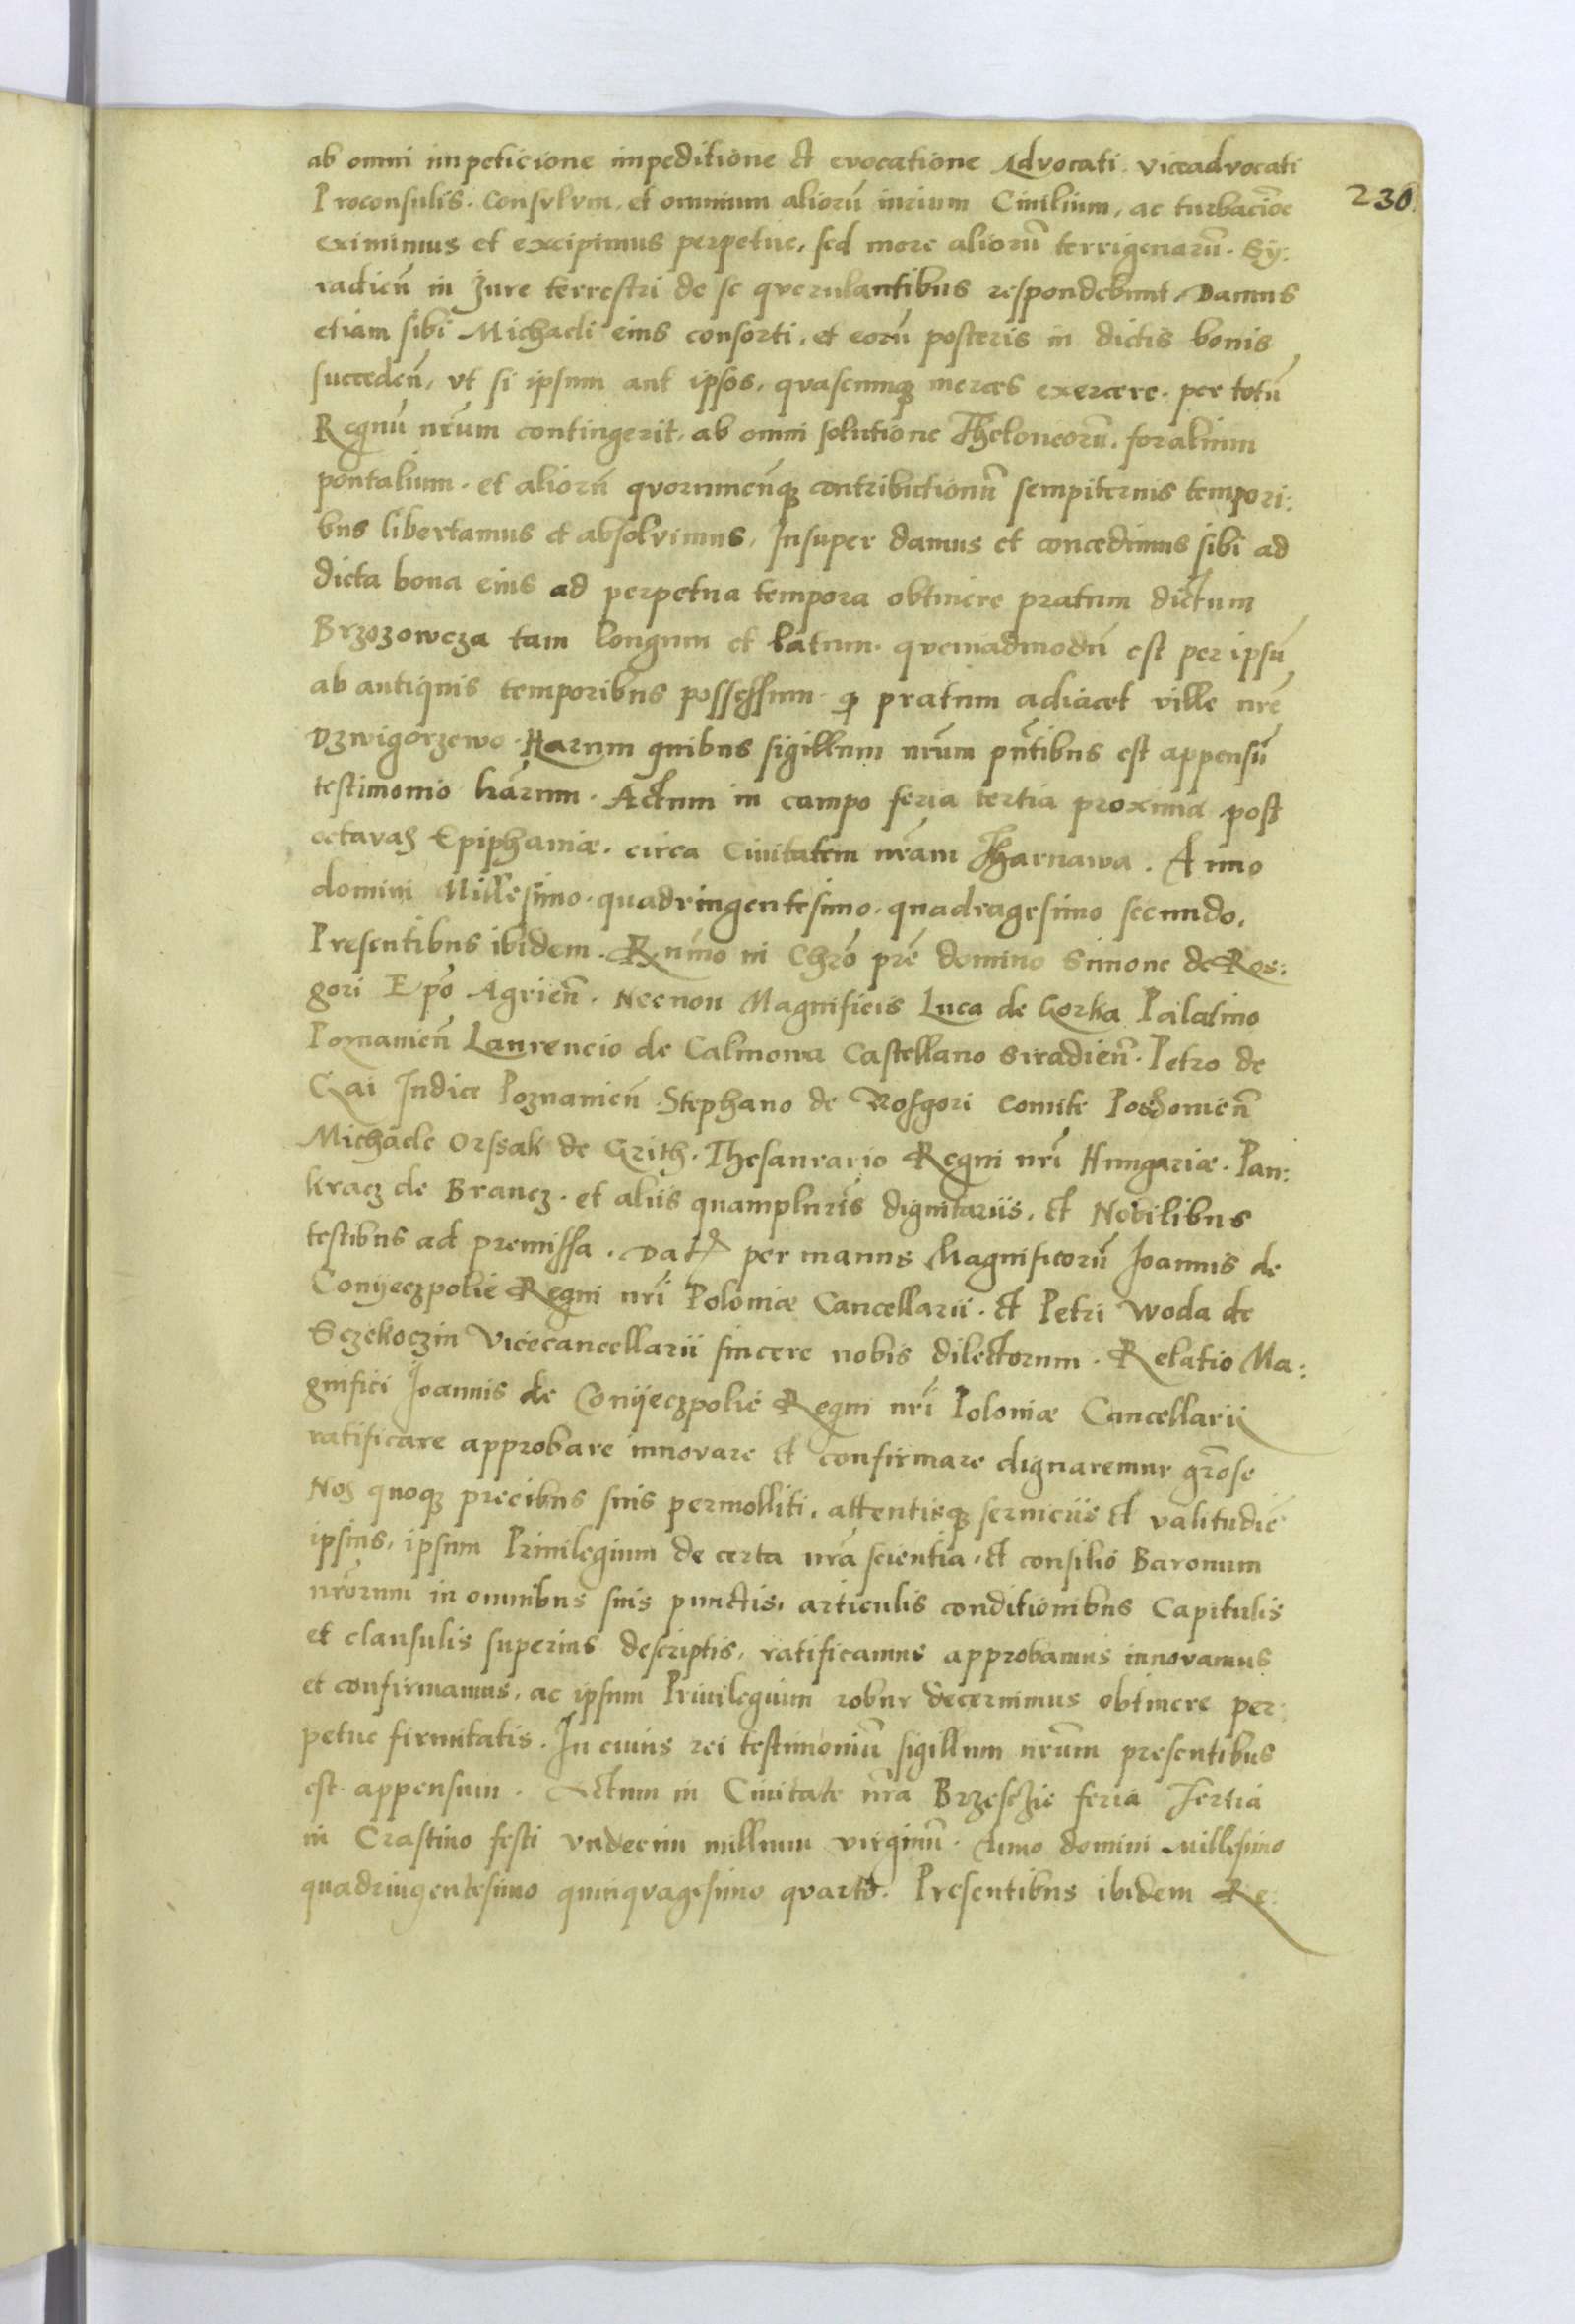 ab omni impeticione impeditione et evocatione Advocati. viceadvocati
230
Proconsulis. Consvlvm, et omnium aliorū iurium Ciuilium, ac turbaciōe
eximimus et excipimus perpetue, sed more aliorū terrigenarū. Sy:
radieñ in Jure terrestri de se qverulantibus respondebunt, Damus
etiam sibi Michaeli eius consorti, et eorū posteris in dictis bonis
succedeñ, vt si ipsum aut ipsos, qvascunqȝ merces exercere. per totū
Regnū nr̄um contingerit, ab omni solutione Theloneorū, foralium
pontalium. et aliorū qvorumcūqȝ contributionū sempiternis tempori:
bus libertamus et absolvimus, Insuper damus et concedimus sibi ad
dicta bona eius ad perpetua tempora obtinere pratum dictum
Brzozowcza tam longum et latum. qvemadmodū est per ipsū
ab antiquis temporibus possessum. qđ pratum adiacet ville nr̄e
Dzwigorzewo. Harum quibus sigillum nr̄um pn̄tibus est appensū
testimonio lr̄arum. Actum in campo feria tertia proxima post
octavas Epiphaniæ. circa Ciuitatem nr̄am Tharnawa. Anno
domini Millesimo. quadringentesimo. quadragesimo secundo.
Presentibus ibidem. Rn̄mo in Chr̄o pr̄e domino Simone de Ros:
gori Ep̄o Agrieñ. Necnon Magnificis Luca de Gorka Palatino
Poznanieñ Laurencio de Calinowa Castellano Siradieñ. Petro de
Gai Iudice Poznanieñ. Stephano de Rosgori Comite Posonieñ
Michaele Orssak de Grith. Thesaurario Regni nr̄i Hungariæ. Pan:
kracz de Brancz. et aliis quamplur̄is dignitariis, et Nobilibus
testibus ad premissa. Dat̃ per manus Magnificorū Ioannis de
Conyeczpolie Regni nr̄i Poloniæ Cancellarii. et Petri Woda de
Sczekoczin Vicecancellarii sincere nobis dilectorum. Relatio Ma:
gnifici Ioannis de Conyeczpolie Regni nr̄i Poloniæ Cancellarii
ratificare approbare innovare et confirmare dignaremur gr̄ose
Nos quoqȝ precibus suis permolliti, attentisqȝ seruiciis et valitudiē
ipsius, ipsum Priuilegium de certa nr̄a scientia, et consilio Baronum
nr̄orum in omnibus suis punctis, articulis conditionibus Capitulis
et clausulis superius descriptis, ratificamus approbamus innovamus
et confirmamus, ac ipsum Priuilegium robur decernimus obtinere per:
petue firmitatis. In cuius rei testimoniū sigillum nr̄um presentibus
est appensum. Actum in Ciuitate nr̄a Brzesczie feria Tertia
in Crastino festi Vndecim millium virginū. Anno domini Millesimo
quadringentesimo quinqvagesimo qvarto. Presentibus ibidem Re: